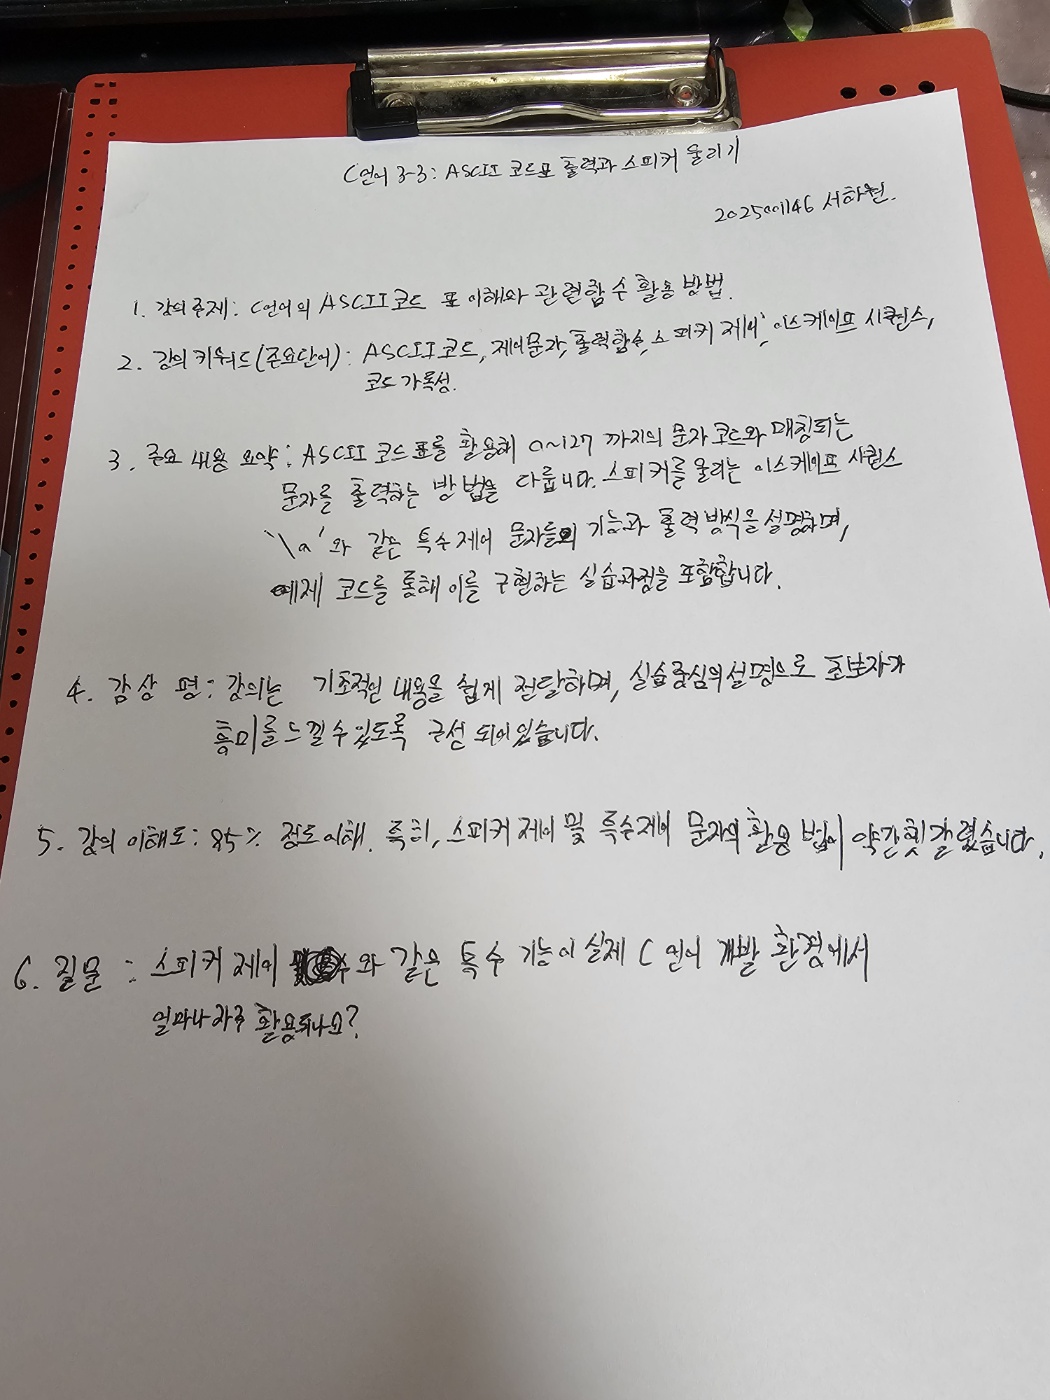 C언어 3-3: ASCII 코드표 출력과 스피커 울리기
2025001146 서하원.
1. 강의주제: C언어의 ASCII코드 표 이해와 관련함수 활용 방법.
2. 강의 키워드(주요단어): ASCII코드, 제어문자, 출력함수, 스피커 제어, 이스케이프 시퀀스,
코드 가독성.
3. 주요 내용 요약: ASCII 코드표를 활용해 0~127 까지의 문자 코드와 매칭되는
문자를 출력하는 방법을 다룹니다. 스피커를 울리는 이스케이프 시퀀스
'\a'와 같은 특수 제어 문자들의 기능과 출력 방식을 설명하며,
예제 코드를 통해 이를 구현하는 실습과정을 포함합니다.
4. 감상 평: 강의는 기초적인 내용을 쉽게 전달하며, 실습중심의 설명으로 초보자가
흥미를 느낄 수 있도록 구성 되어있습니다.
5. 강의 이해도: 85% 정도 이해. 특히, 스피커 제어 및 특수제어 문자의 활용 법이 약간 헷갈렸습니다.
6. 질문: 스피커 제어 와 같은 특수 기능이 실제 C 언어 개발 환경에서
얼마나 자주 활용되나요?